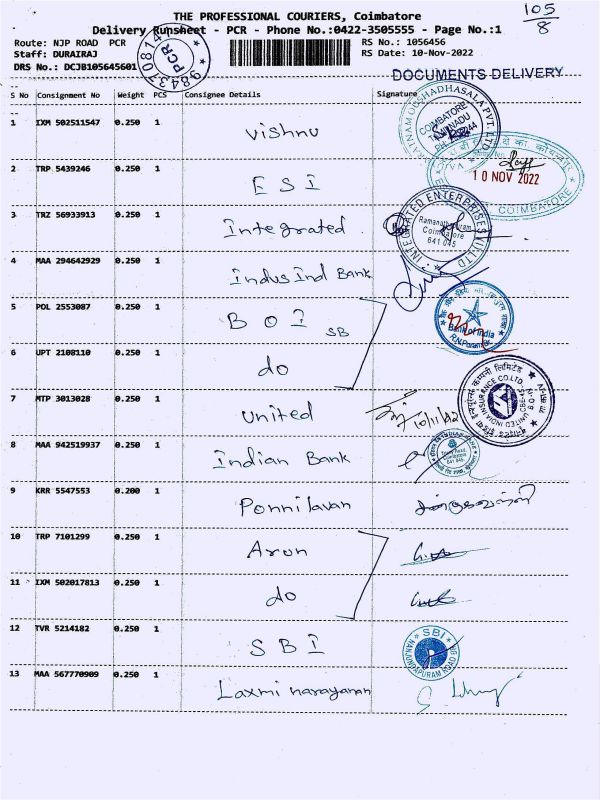 105/8
THE PROFESSIONAL COURIERS, Coimbatore
Delivery Runsheet - PCR - Phone No.:0422-3505555 - Page No.:1
Route: NJP ROAD PCR
RS No.: 1056456
Staff: DURAIRAJ
RS Date: 10-Nov-2022
DRS No.: DCJB105645601
PCR
DOCUMENTS DELIVERY
S No Consignment No Weight PCS Consignee Details Signature
1 IXM 502511547 0.250 1 Vishnu
COIMBATORE
2 TRP 5439246 0.250 1 ESI
10 NOV 2022
COIMBATORE
3 TRZ 56933913 0.250 1 Integrated
INTEGRATED ENTERPRISES
Coimbatore
641 045
4 MAA 294642929 0.250 1 Indus Ind Bank
5 POL 2553087 0.250 1 BOI SB
Bank of India
6 UPT 2108110 0.250 1 do
7 MTP 3013028 0.250 1 United
UNITED INDIA INSURANCE CO.LTD
8 MAA 942519937 0.250 1 Indian Bank
9 KRR 5547553 0.200 1 Ponnilavan
10 TRP 7101299 0.250 1 Arun
11 IXM 502017813 0.250 1 do
12 TVR 5214182 0.250 1 SBI
SBI
13 MAA 567770909 0.250 1 Laxmi narayanan